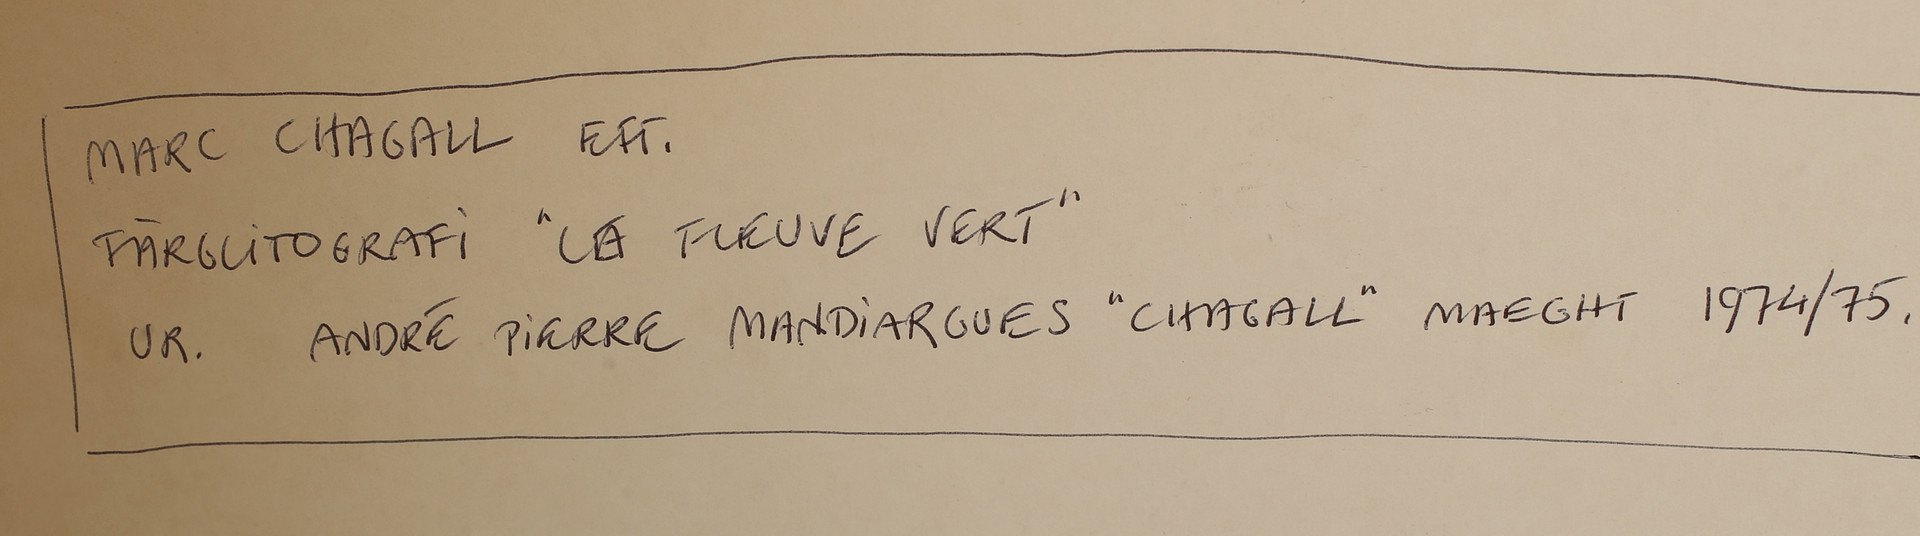 MARC CHAGALL EFT.
FÄRGLITOGRAFI "LE FLEUVE VERT"
UR. ANDRÉ PIERRE MANDIARGUES "CHAGALL" MAEGHT 1974/75.